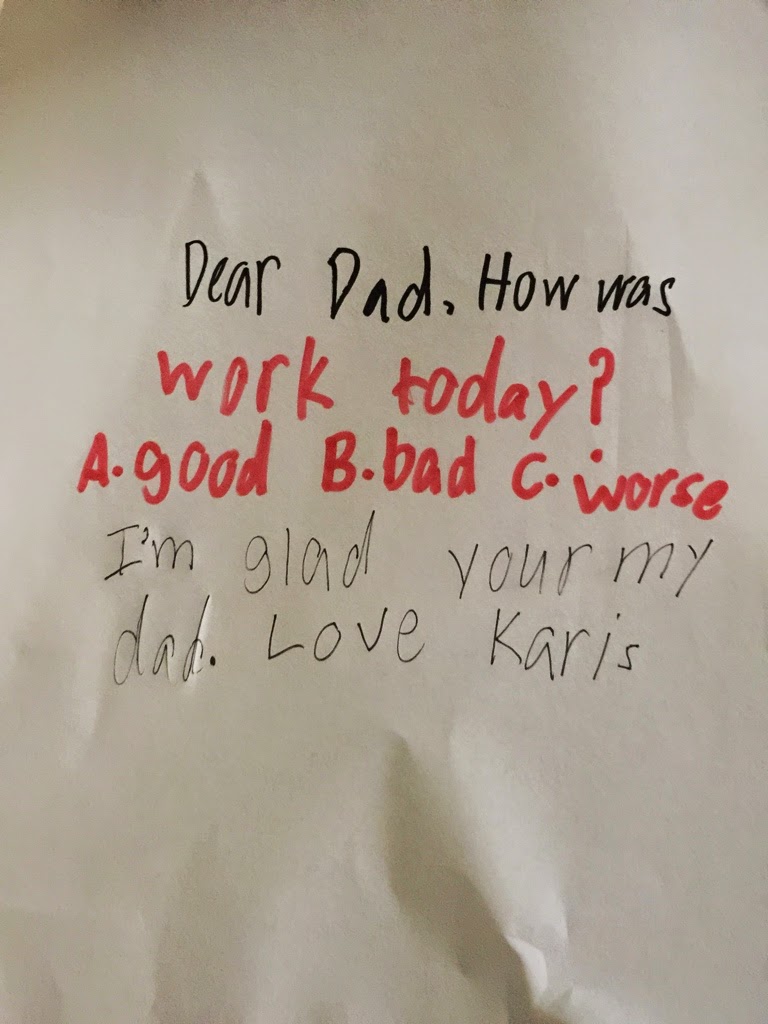 Dear Dad, How was
work today?
A. good B. bad C. worse
I'm glad your my
dad. Love Karis